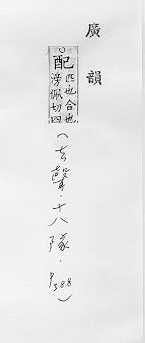 廣韻
配
匹也合也
滂佩切四
(去聲.十八隊.P388)